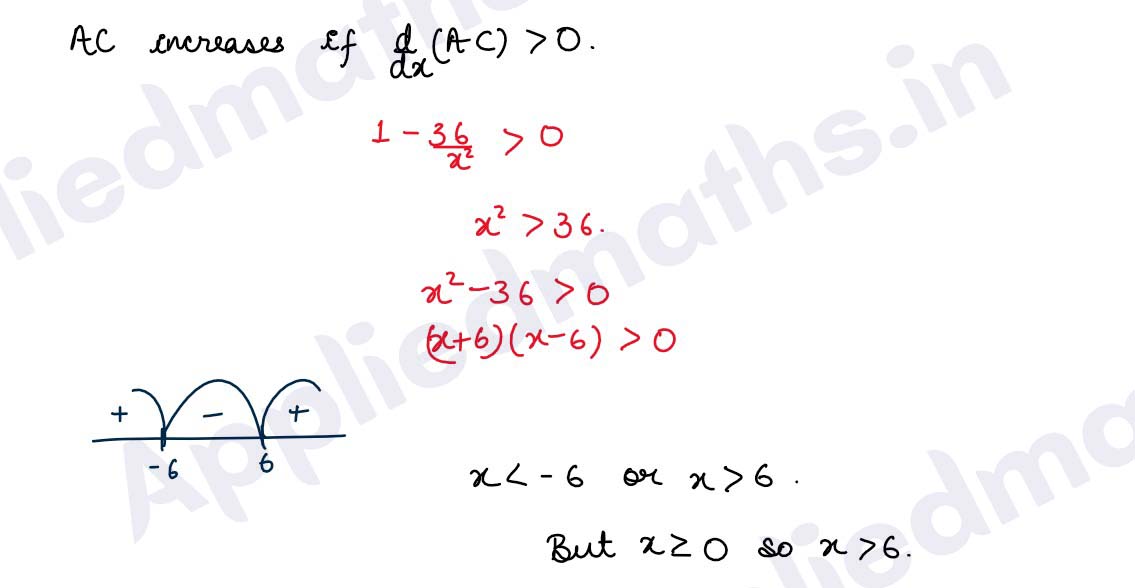 AC increases if d/dx (AC) > 0.
1 - 36/x² > 0
x² > 36.
x² - 36 > 0
(x+6)(x-6) > 0
+ - +
-6 6
x < -6 or x > 6 .
But x ≥ 0 so x > 6.
Appliedmaths.in